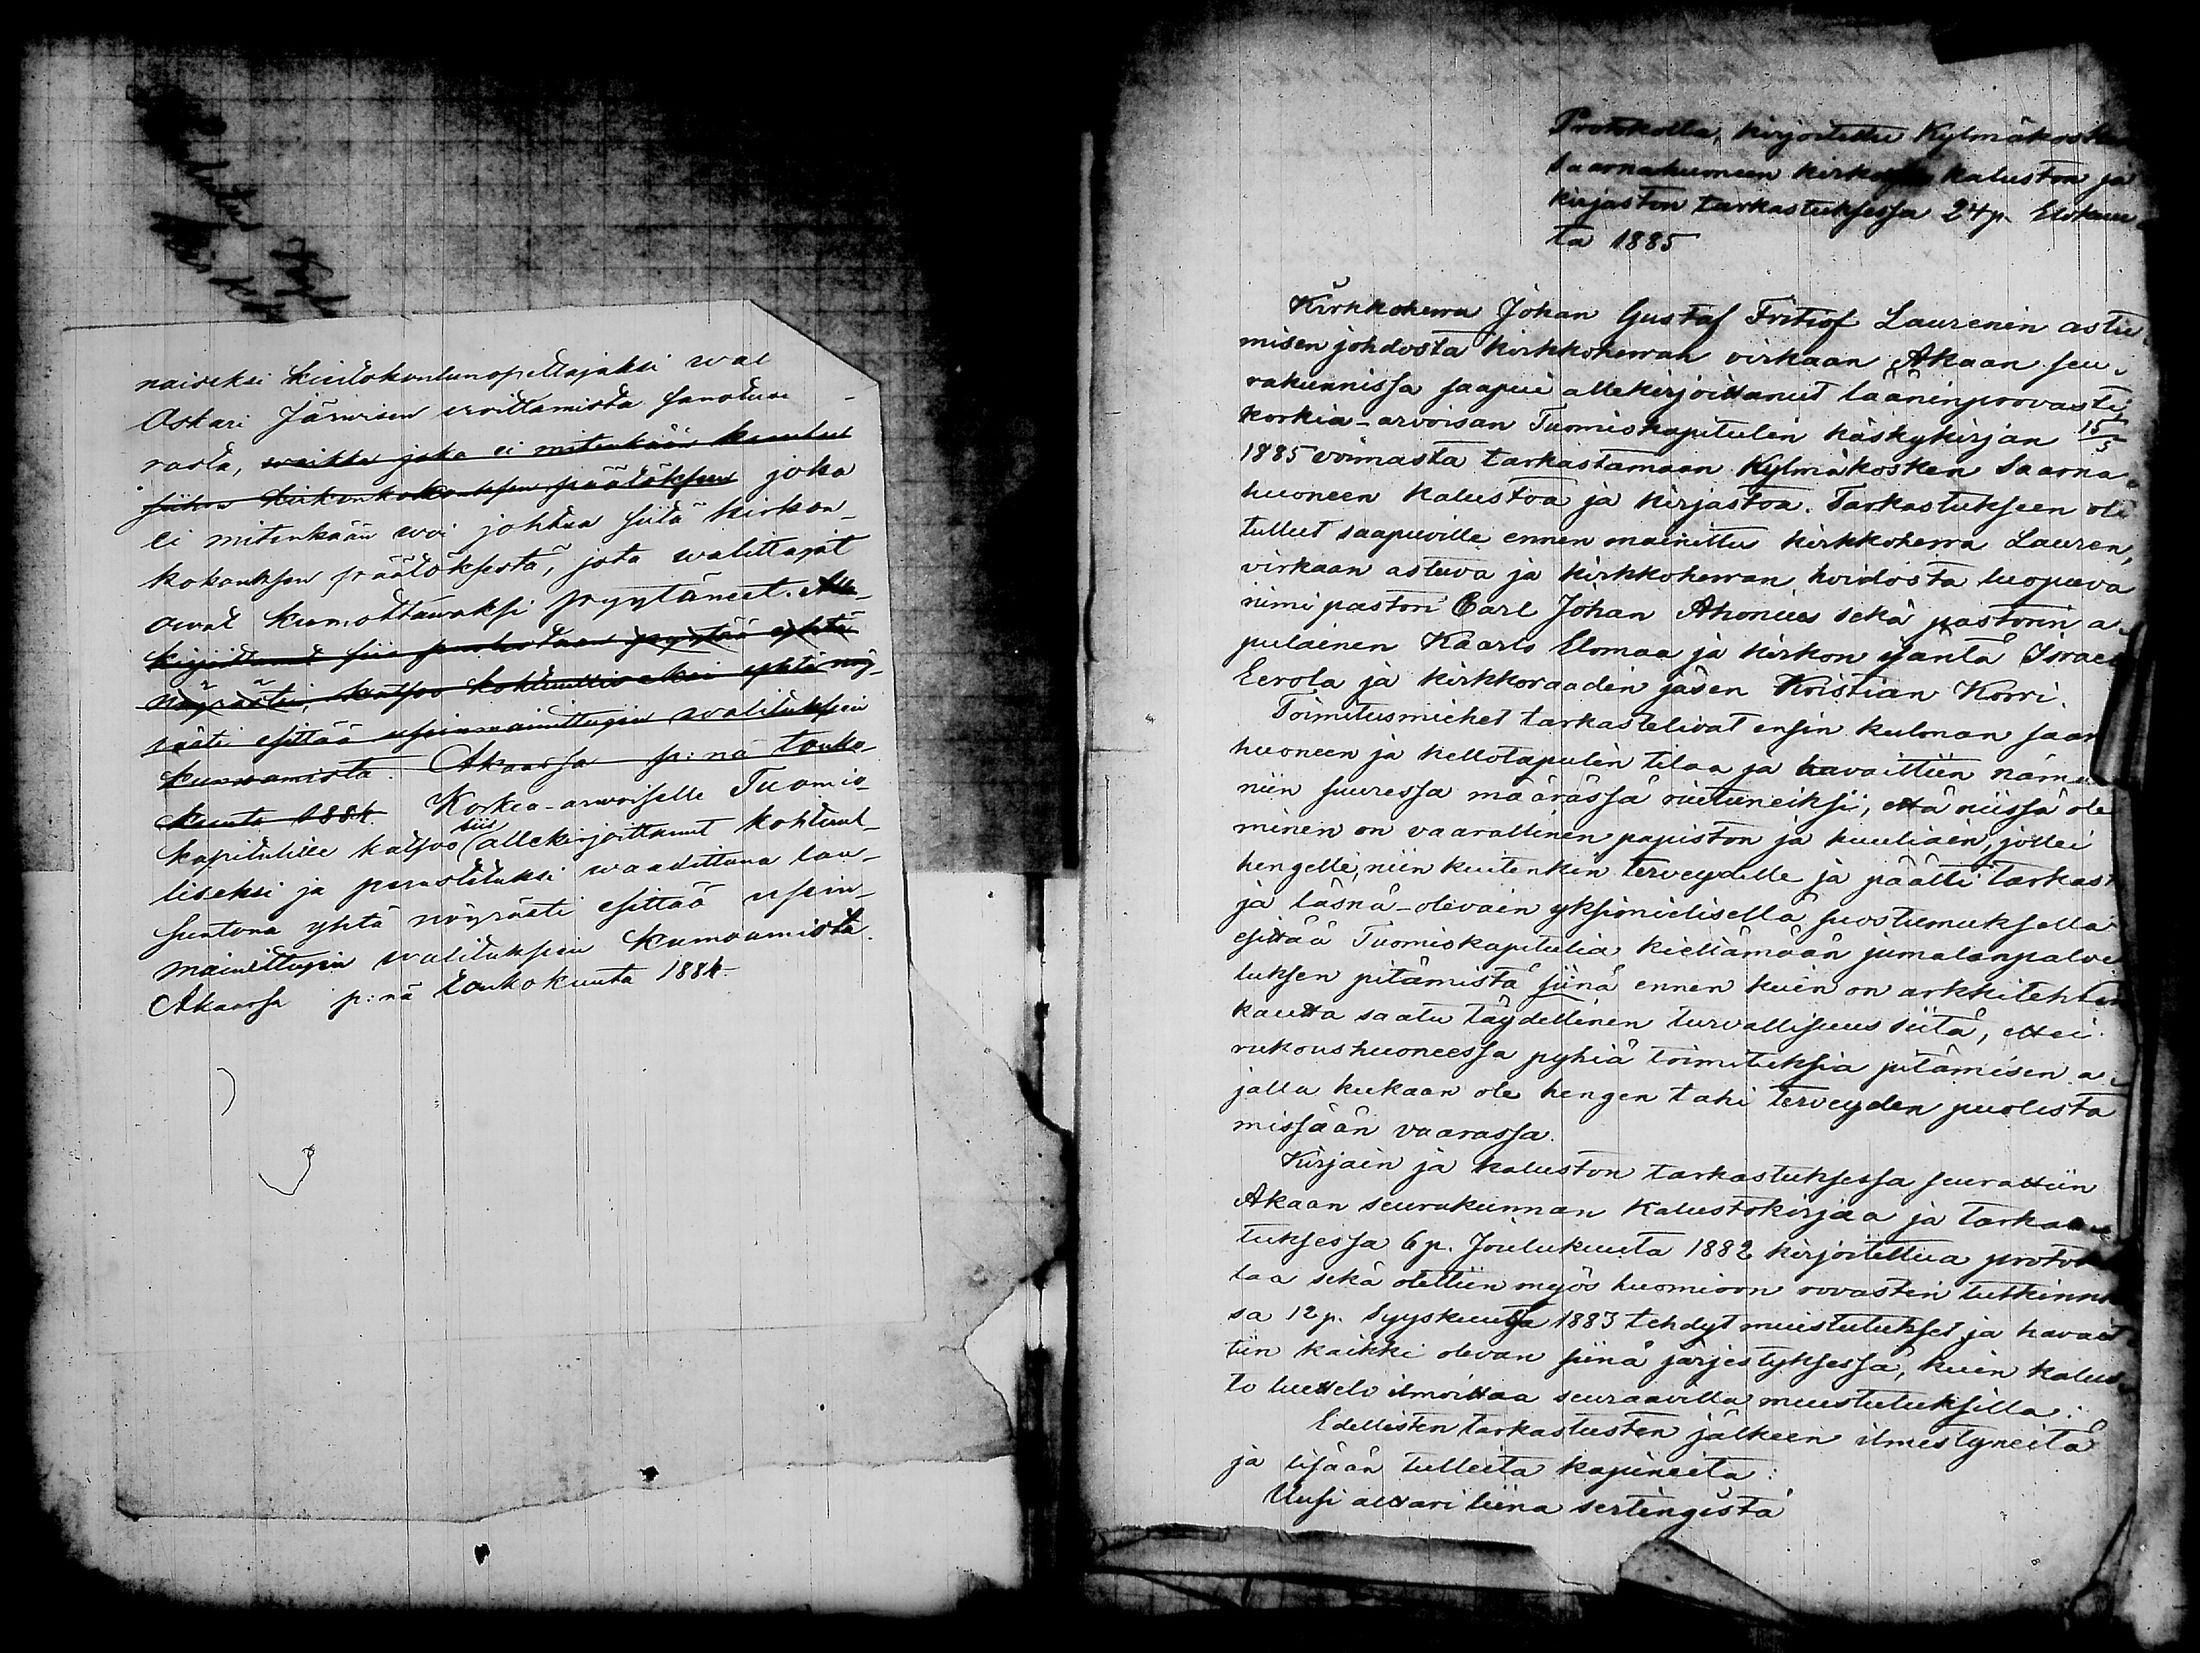 naiseksi kiertokoulunopettajaksi wal
Oskari Järwisen eroittamista sanotusta
rasta, waikka joka ei mitenkään kuulu
siihen kirkonkokouksen päätökseen joka
ei mitenkään woi johtua siitä kirkon-
kokouksen päätöksestä, jota walittajat
owat kumottawaksi pyytäneet. Alle-
kirjoittanut siis pyytää yhtä
nöyrästi, katsoo kohtuulliseksi yhtä nöy-
rästi esittää usein mainittujen walituksien
kumoamista. Akaassa p:nä touko-
kuuta 1884. Korkea-arwoiselle Tuomio-
kapitulille katsoo siis allekirjoittanut kohtuul-
liseksi ja perustetuksi waadittuna lau-
suntona yhtä nöyrästi esittää usein-
mainittujen walituksien kumoamista.
Akaassa p:nä toukokuuta 1884.
Protokolla, kirjoitettu Kylmäkosken
Saarnahuoneen kirkon kaluston ja
kirjaston tarkastuksessa 24 p. Elokuu-
ta 1885
Kirkkoherra Johan Gustaf Fritiof Laurenin astu-
misen johdosta kirkkoherran virkaan Akaan seu-
rakunnissa saapui allekirjoittanut lääninprovasti
korkia-arvoisan Tuomiokapitulin käskykirjan 15/5
1885 voimasta tarkastamaan Kylmäkosken Saarna-
huoneen kalustoa ja kirjastoa. Tarkastukseen oli
tullut saapuville ennen mainittu kirkkoherra Lauren,
virkaan astuva ja kirkkoherran hoidosta luopuva
nimipastori Carl Johan Ahonius sekä pastorin a-
pulainen Kaarlo Elomaa ja kirkon isäntä Israel
Eerola ja kirkkoraadin jäsen Kristian Korri.
Toimitusmiehet tarkastelivat ensin kulman saarna
huoneen ja kellotapulin tilaa ja havaittiin nämä
niin suuressa määrässä rietuneiksi, että niissä ole
minen on vaarallinen papiston ja kuuliain, jollei
hengelle, niin kuitenkin terveydelle ja päätti tarkast
ja läsnä-olevain yksimielisellä suostumuksella
esittää Tuomiokapitulia kieltämään jumalanpalve
luksen pitämistä siinä ennen kuin on arkkitehtin
kautta saatu täydellinen turvallisuus siitä, ettei
rukoushuoneessa pyhiä toimituksia pitämisen a-
jalla kukaan ole hengen tahi terveyden puolesta
missään vaarassa.
Kirjain ja kaluston tarkastuksessa seurattiin
Akaan seurakunnan Kalustokirjaa ja tarkas
tuksessa 6 p. Joulukuuta 1882 kirjoitettua protokol
laa sekä otettiin myös huomioon rovastin tutkinnos
sa 12 p. Syyskuuta 1883 tehdyt muistutukset ja havait
tiin kaikki olevan siinä järjestyksessä, kuin kalus-
to luettelo ilmoittaa seuraavilla muistutuksilla:
Edellisten tarkastusten jälkeen ilmestyneitä
ja lisään tulleita kapineita:
Uusi alttari liina sertingistä